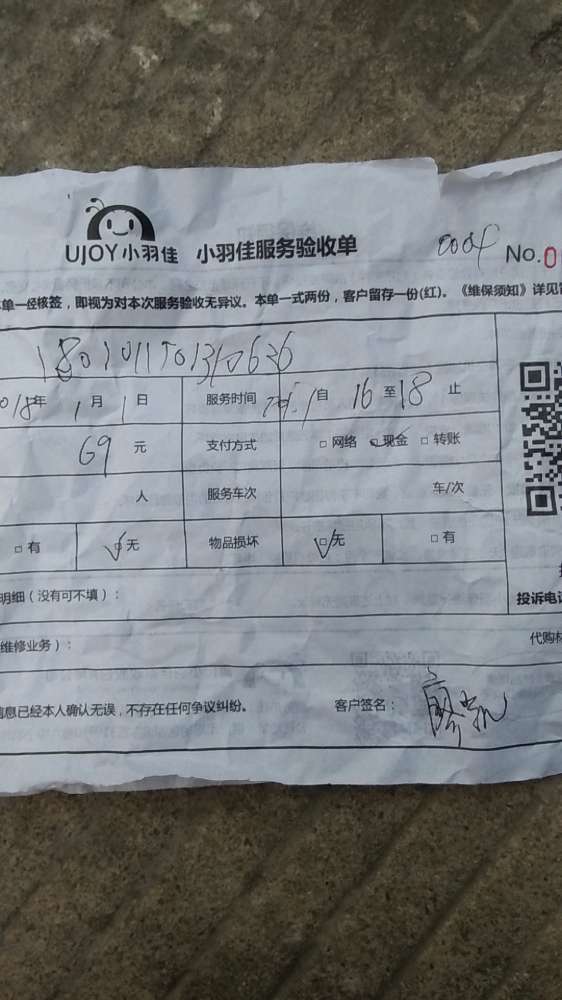 UJOY小羽佳 小羽佳服务验收单 No.0
本单一经核签，即视为对本次服务验收无异议。本单一式两份，客户留存一份(红)。《维保须知》详见
018年 1月1日 服务时间 自 16 至 18 止
69 元 支付方式 □网络 □现金 □转账
人 服务车次 车/次
□有 □无 物品损坏 □无 □有
明细（没有可不填）： 投诉电
维修业务）： 代购
信息已经本人确认无误，不存在任何争议纠纷。 客户签名：